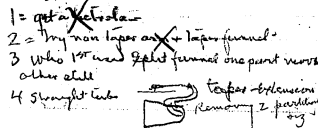 1 = get a
2 = Try non taper arm + taper funnel
3 Who 1st used split funnel one part move
other still
4 straight tube taper-extension
Removing 2 partition